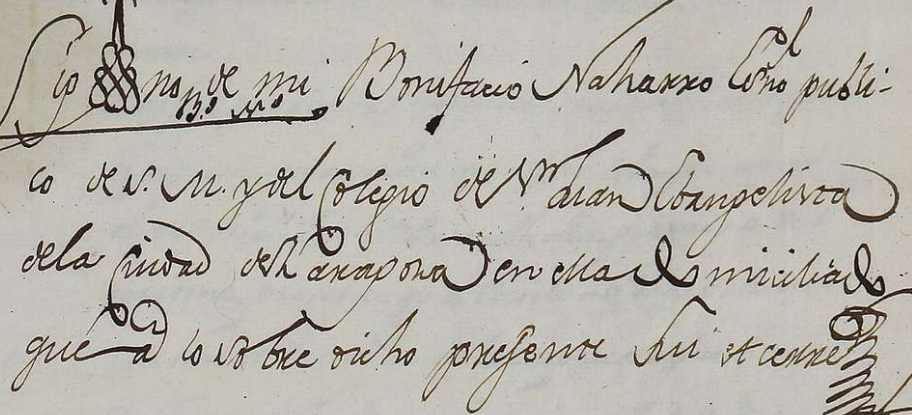 Sig no de mi Bonifacio Naharro Es.no publi-
co de S. M. y del Colegio de Sn Juan Evangelista
de la Ciudad de Zaragoza en ella domiciliado
que a lo sobre dicho presente fui et cerre